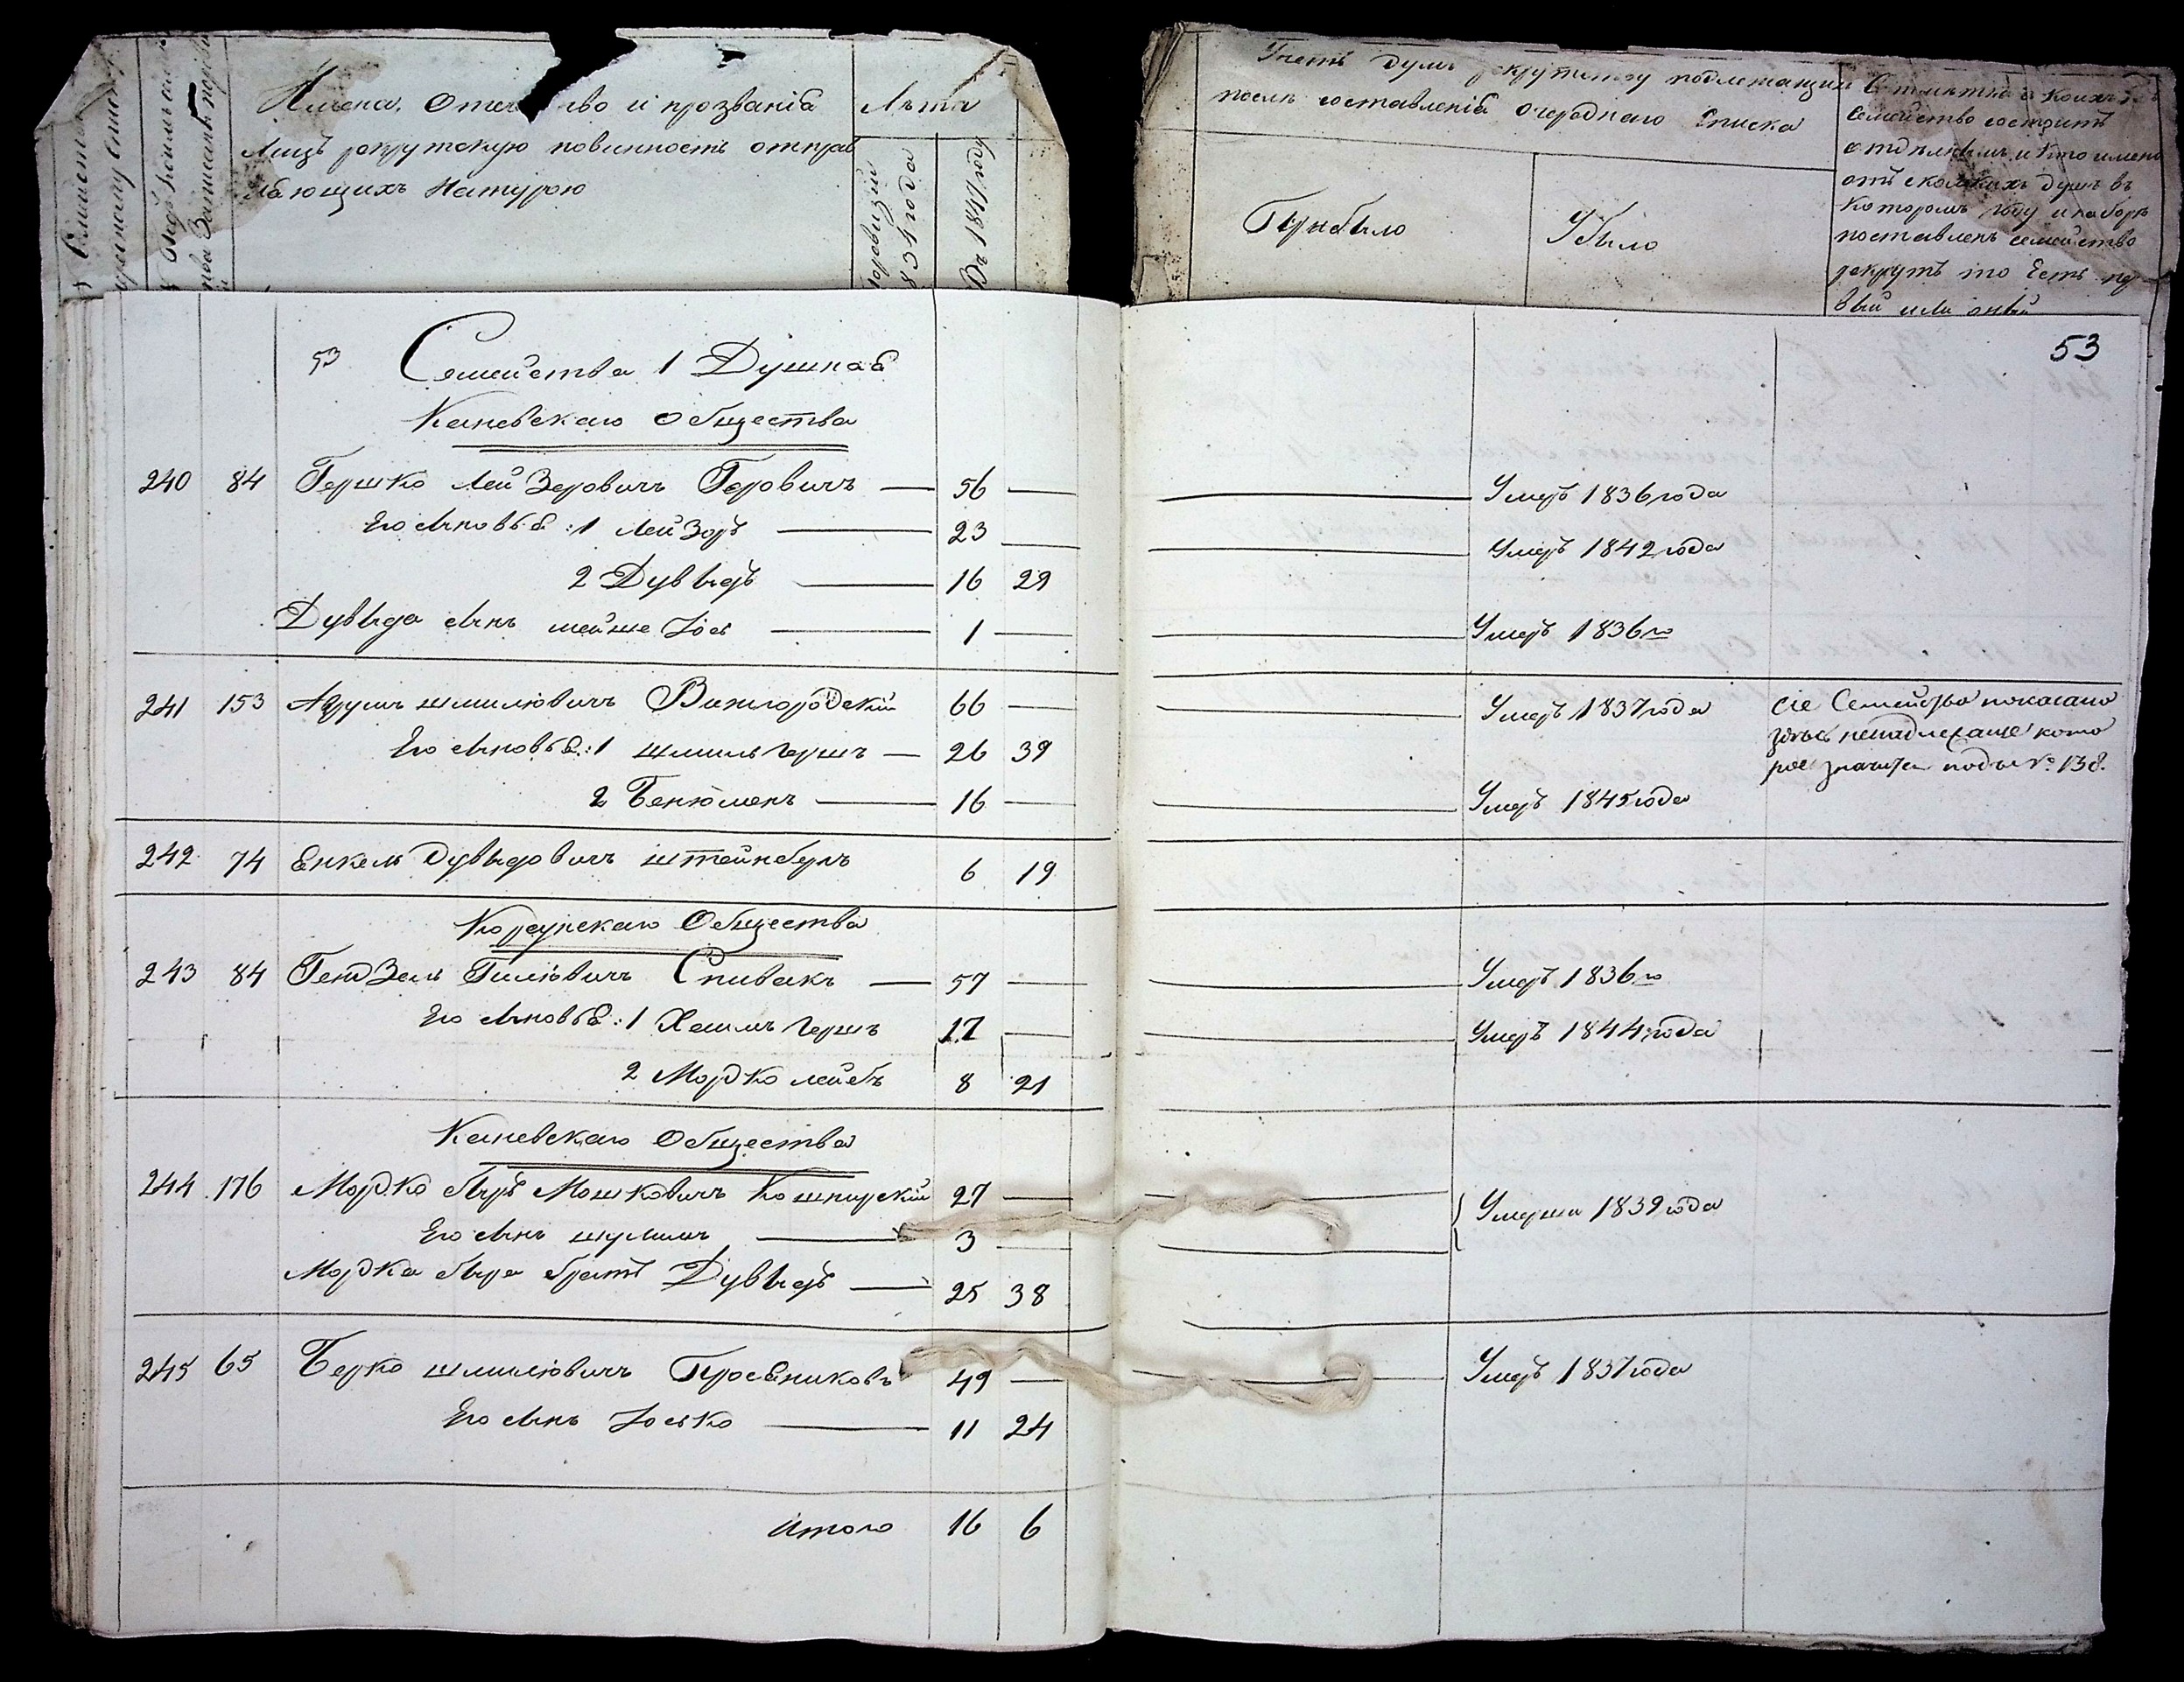 Имена, Отечество и прозванія
Лицъ рекрутскую повинность отправ
ляющихъ Натурою
Лѣта
по ревизіи
834 года
Въ 184 году
Учетъ душъ рекрутству подлежащихъ
послѣ составленія очереднаго Списка
Прибыло
Убыло
семейство состоитъ
и кто имено
отъ сколькихъ душъ въ
которомъ году и наборѣ
поставленъ семейство
рекрутъ то Есть пер
вый или
53
53
Семейства 1 Душная
Каневскаго Общества
240 84 Гершко Лейзеровичъ Геровичъ 56 Умеръ 1836 года
Его сыновья: 1 Лейзоръ 23 Умеръ 1842 года
2 Дувыдъ 16 29
Дувыда сынъ мейше Іось 1 Умеръ 1836 го
241 153 Аврумъ шмилювичъ Вышгородскій 66 Умеръ 1837 года
Его сыновья: 1 шмиль герш 26 39
2 Бенюменъ 16 Умеръ 1845 года
сіе Семейство показано
здѣсь ненадлежаще кото
рое значится подъ № 138.
242 74 Енкель Дувыдовичъ штейнбукъ 6 19
Корсунскаго Общества
243 84 Гендзель Гилювичъ Спивакъ 57 Умеръ 1836 го
Его сыновья: 1 Хаимъ герш 17 Умеръ 1844 года
2 Мордко лейбъ 8 21
Каневскаго Общества
244 176 Мордко беръ Мошковичъ Кошпирскій 27 Умерли 1839 года
Его сынъ шулимъ 3
Мордка бера братъ Дувыдъ 25 38
245 65 Берко шмилювичъ Просяниковъ 49 Умеръ 1837 года
Его сынъ Іосько 11 24
Итого 16 6